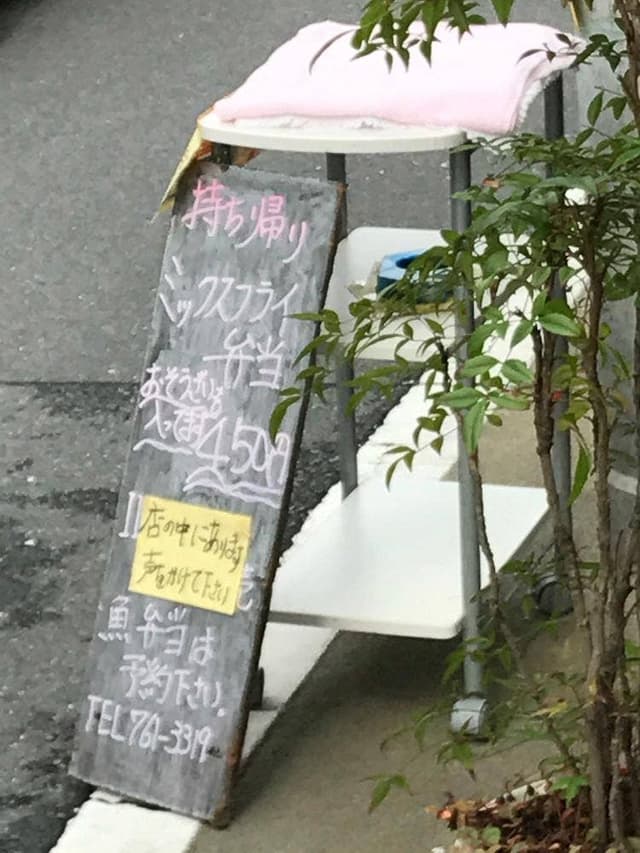 持ち帰り
ミックスフライ
弁当
おそうざいも
入って
450円
店の中にあります
声をかけて下さい
魚弁当は
予約下さい。
TEL 761-3319